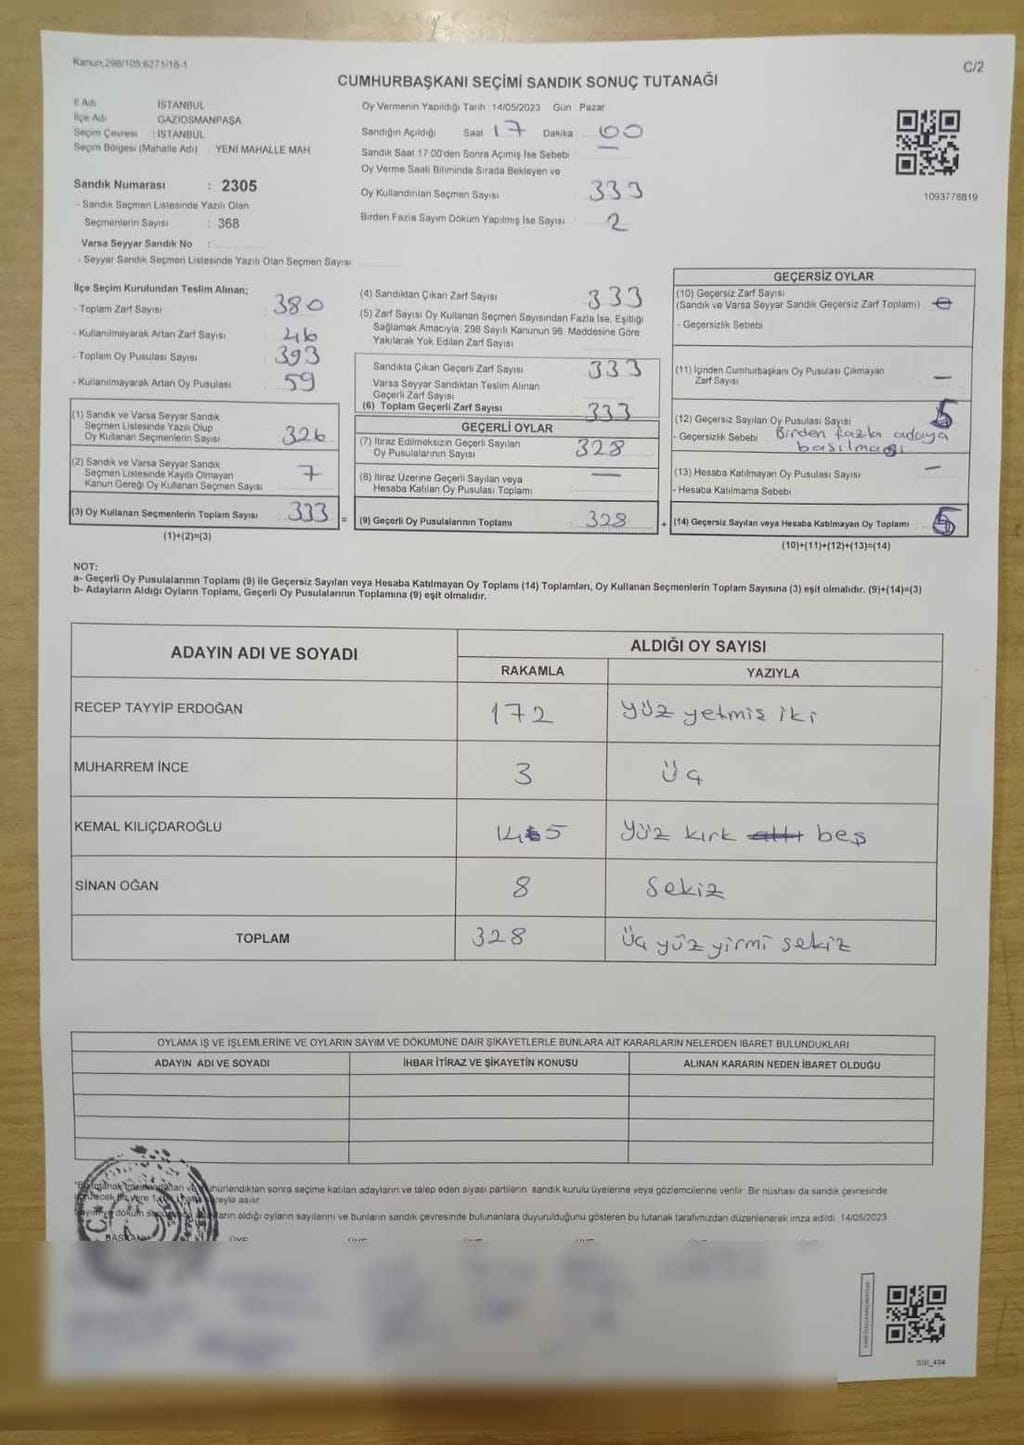 Kanun,298/105,6271/18-1
C/2
CUMHURBAŞKANI SEÇİMİ SANDIK SONUÇ TUTANAĞI
İl Adı İSTANBUL
İlçe Adı GAZİOSMANPAŞA
Seçim Çevresi : İSTANBUL
Seçim Bölgesi (Mahalle Adı) YENİ MAHALLE MAH
Sandık Numarası : 2305
- Sandık Seçmen Listesinde Yazılı Olan
Seçmenlerin Sayısı : 368
Varsa Seyyar Sandık No :
- Seyyar Sandık Seçmen Listesinde Yazılı Olan Seçmen Sayısı
Oy Vermenin Yapıldığı Tarih :14/05/2023 Gün Pazar
Sandığın Açıldığı Saat 17 Dakika 00
Sandık Saat 17:00'den Sonra Açımış İse Sebebi —
Oy Verme Saati Bitiminde Sırada Bekleyen ve
Oy Kullandırılan Seçmen Sayısı 333
Birden Fazla Sayım Döküm Yapılmış İse Sayısı 2
1093778819
İlçe Seçim Kurulundan Teslim Alınan;
- Toplam Zarf Sayısı 380
- Kullanılmayarak Artan Zarf Sayısı 46
- Toplam Oy Pusulası Sayısı 393
- Kullanılmayarak Artan Oy Pusulası 59
(1) Sandık ve Varsa Seyyar Sandık
Seçmen Listesinde Yazılı Olup
Oy Kullanan Seçmenlerin Sayısı 326
(2) Sandık ve Varsa Seyyar Sandık
Seçmen Listesinde Kayıtlı Olmayan
Kanun Gereği Oy Kullanan Seçmen Sayısı 7
(3) Oy Kullanan Seçmenlerin Toplam Sayısı 333 =
(1)+(2)=(3)
(4) Sandıktan Çıkan Zarf Sayısı 333
(5) Zarf Sayısı Oy Kullanan Seçmen Sayısından Fazla İse, Eşitliği
Sağlamak Amacıyla, 298 Sayılı Kanunun 98. Maddesine Göre
Yakılarak Yok Edilen Zarf Sayısı
Sandıkta Çıkan Geçerli Zarf Sayısı 333
Varsa Seyyar Sandıktan Teslim Alınan
Geçerli Zarf Sayısı
(6) Toplam Geçerli Zarf Sayısı 333
GEÇERLİ OYLAR
(7) İtiraz Edilmeksizin Geçerli Sayılan
Oy Pusulalarının Sayısı 328
(8) İtiraz Üzerine Geçerli Sayılan veya
Hesaba Katılan Oy Pusulası Toplamı —
(9) Geçerli Oy Pusulalarının Toplamı 328 +
GEÇERSİZ OYLAR
(10) Geçersiz Zarf Sayısı
(Sandık ve Varsa Seyyar Sandık Geçersiz Zarf Toplamı)
- Geçersizlik Sebebi
(11) İçinden Cumhurbaşkanı Oy Pusulası Çıkmayan
Zarf Sayısı —
(12) Geçersiz Sayılan Oy Pusulası Sayısı 5
- Geçersizlik Sebebi Birden fazla adaya
basılması
(13) Hesaba Katılmayan Oy Pusulası Sayısı —
- Hesaba Katılmama Sebebi
(14) Geçersiz Sayılan veya Hesaba Katılmayan Oy Toplamı 5
(10)+(11)+(12)+(13)=(14)
NOT:
a- Geçerli Oy Pusulalarının Toplamı (9) ile Geçersiz Sayılan veya Hesaba Katılmayan Oy Toplamı (14) Toplamları, Oy Kullanan Seçmenlerin Toplam Sayısına (3) eşit olmalıdır. (9)+(14)=(3)
b- Adayların Aldığı Oyların Toplamı, Geçerli Oy Pusulalarının Toplamına (9) eşit olmalıdır.
ADAYIN ADI VE SOYADI
ALDIĞI OY SAYISI
RAKAMLA YAZIYLA
RECEP TAYYİP ERDOĞAN 172 yüz yetmiş iki
MUHARREM İNCE 3 üç
KEMAL KILIÇDAROĞLU 145 yüz kırk altı beş
SİNAN OĞAN 8 sekiz
TOPLAM 328 üç yüz yirmi sekiz
OYLAMA İŞ VE İŞLEMLERİNE VE OYLARIN SAYIM VE DÖKÜMÜNE DAİR ŞİKAYETLERLE BUNLARA AİT KARARLARIN NELERDEN İBARET BULUNDUKLARI
ADAYIN ADI VE SOYADI İHBAR İTİRAZ VE ŞİKAYETİN KONUSU ALINAN KARARIN NEDEN İBARET OLDUĞU
sonra seçime katılan adayların ve talep eden siyasi partilerin sandık kurulu üyelerine veya gözlemcilerine verilir. Bir nüshası da sandık çevresinde
asılır
aldığı oyların sayılarını ve bunların sandık çevresinde bulunanlara duyurulduğunu gösteren bu tutanak tarafımızdan düzenlenerek imza edildi 14/05/2023
BAŞKAN ÜYE